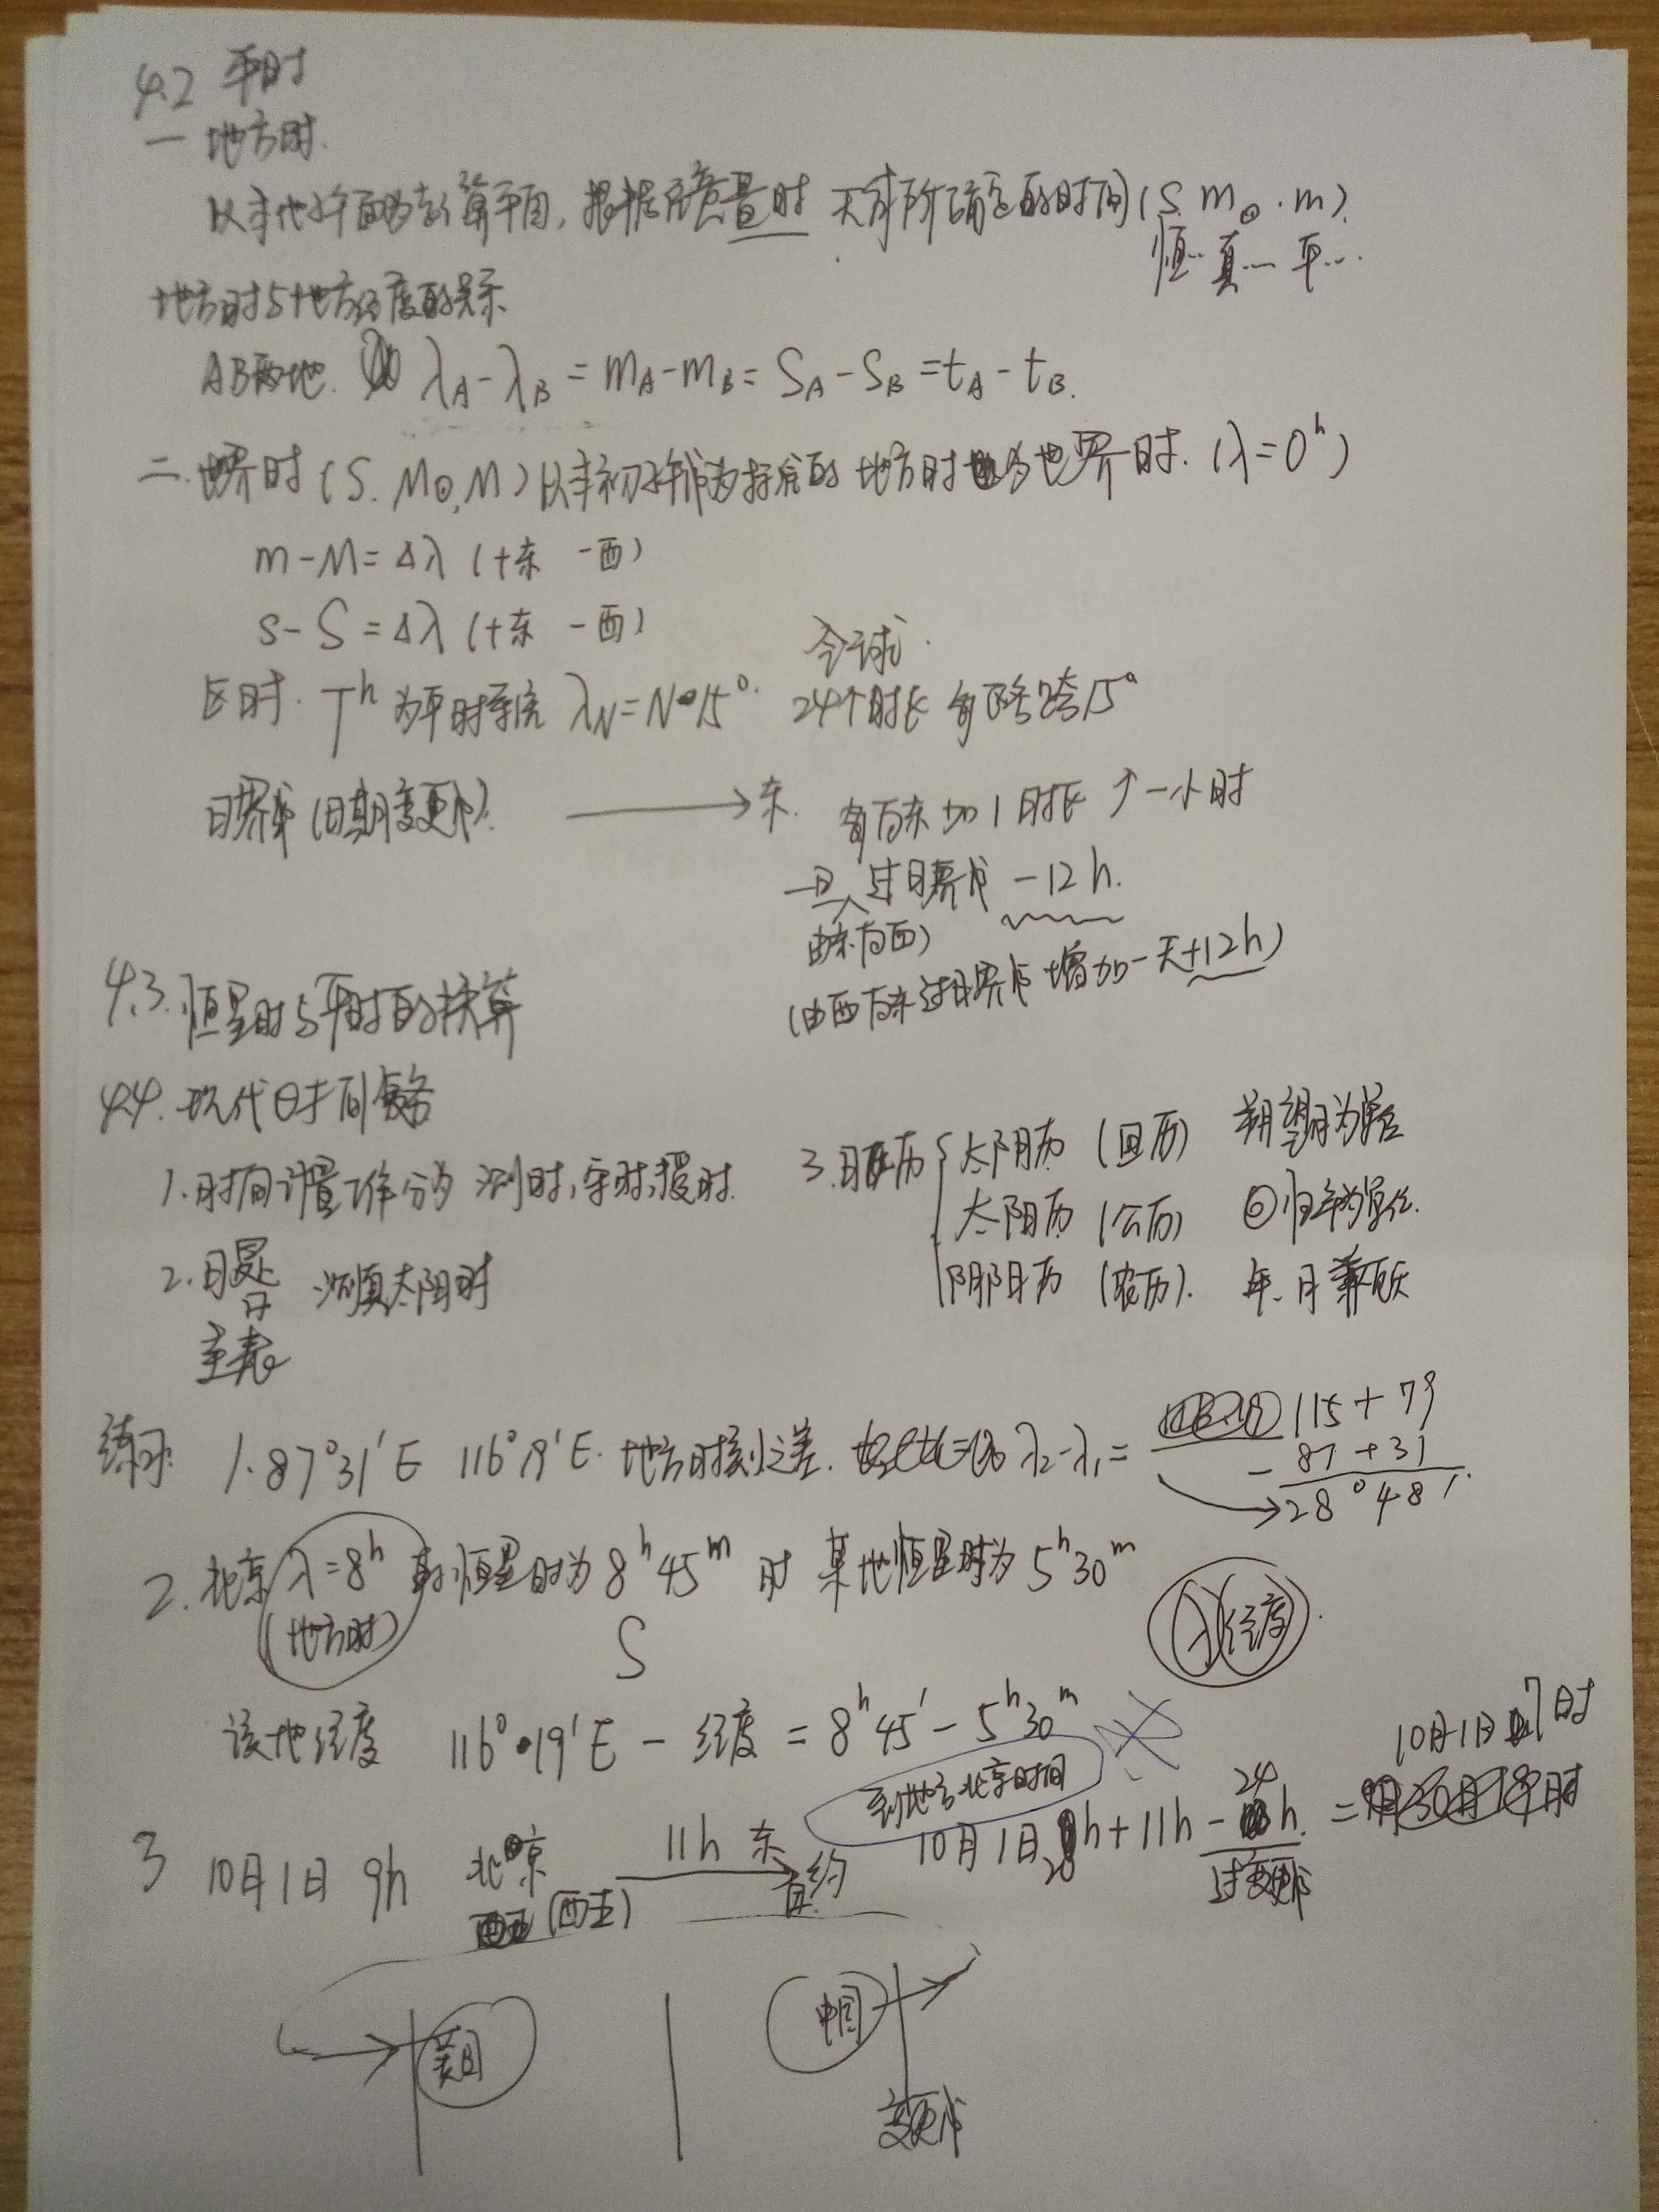 4.2 平时
一 地方时.
以本地子午面为起算平面, 根据任意量时 天球所确定的时间(S. m⊙. m).
恒… 真… 平…
地方时与地方经度的关系
AB两地. λA-λB = mA-mB = SA-SB = tA-tB.
二. 世界时 (S. M⊙, M) 以本初子午线为标准的 地方时 为世界时. (λ=0h)
m-M=Δλ (+东 -西)
s-S=Δλ (+东 -西)
全球.
区时. Th 为平时系统 λN=N·15°. 24个时区 每区跨15°
日界线 (日期变更线). → 东. 每向东加1时区 ↑一小时
一旦 过日界线 -12h.
由东向西)
(由西向东过日界线 增加一天+12h)
4.3. 恒星时与平时的换算
4.4. 现代时间服务
1. 时间计量工作分为 测时, 守时, 授时.
2. 日晷 测真太阳时
圭表
3. 历 { 太阴历 (回历) 朔望月为单位
太阳历 (公历) 回归年为单位.
阴阳历 (农历). 年、月兼顾
练习: 1. 87°31′E 116°19′E. 地方时刻之差. λ2-λ1= 115+79
- 87+31
→ 28°48′
2. 北京 λ=8h 恒星时为 8h45m 时 某地恒星时为 5h30m
(地方时) S λ(经度).
该地经度 116°·19′E - 经度 = 8h45′ - 5h30m
到地方北京时间
3 10月1日 9h 北京 11h 东→ 10月1日 h+11h-24h = 10月1日 7时
(西去) 约 过变更线
美国 中国
变更线